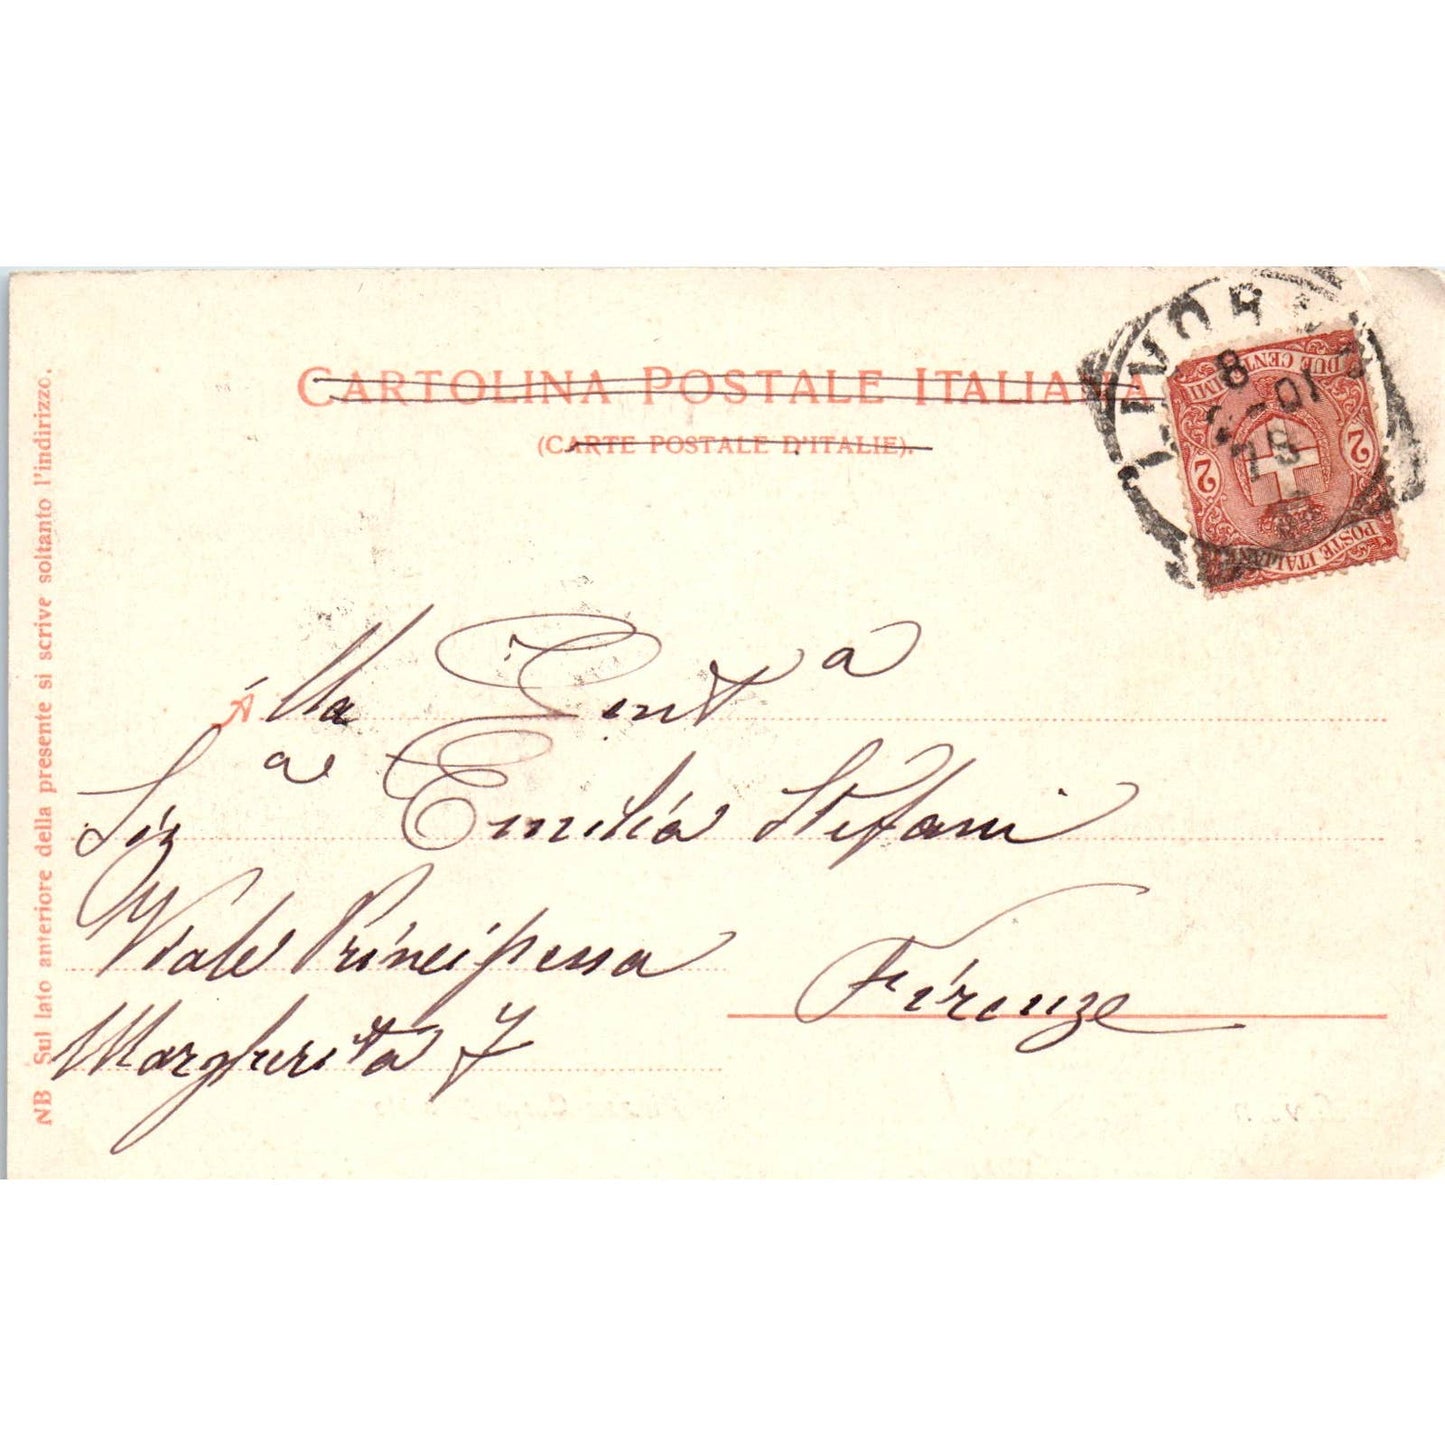 CARTOLINA POSTALE ITALIANA
(CARTE POSTALE D'ITALIE).
LIVORNO
8
7S
DUE CENTESIMI
2 2
POSTE ITALIANE
Alla Gent a
Sig a Emilia Stefani
Viale Principessa
Margherita 7
Firenze
NB Sul lato anteriore della presente si scrive soltanto l'indirizzo.